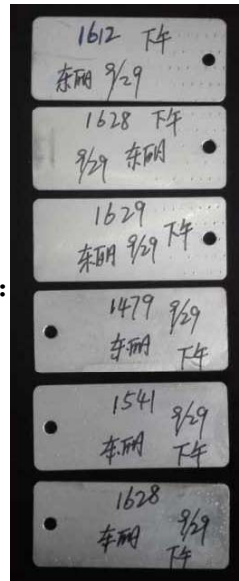 1612 下午
东丽 9/29
1628 下午
9/29 东丽
1629
东丽 9/29 下午
1479 9/29
东丽 下午
1541 9/29
东丽 下午
1628
东丽 9/29
下午
: